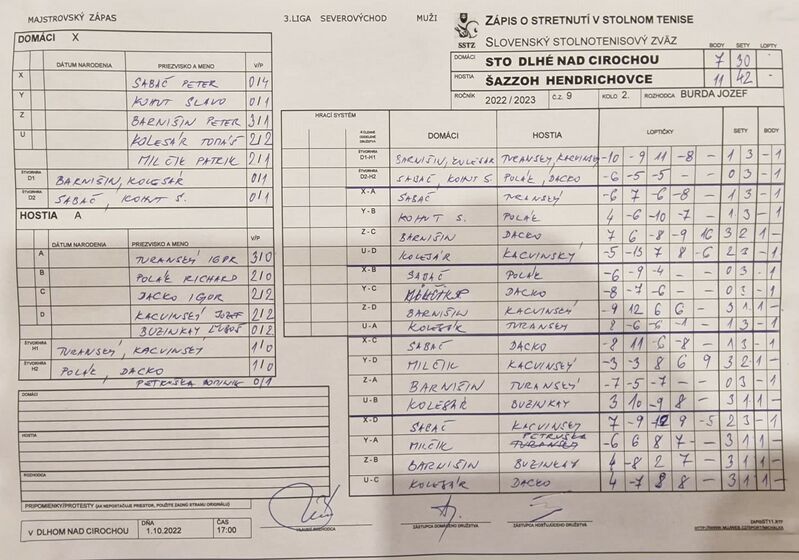 MAJSTROVSKÝ ZÁPAS
3.LIGA SEVEROVÝCHOD MUŽI
SSTZ
ZÁPIS O STRETNUTÍ V STOLNOM TENISE
SLOVENSKÝ STOLNOTENISOVÝ ZVÄZ
BODY SETY LOPTY
DOMÁCI: STO DLHÉ NAD CIROCHOU 7 30 -
HOSTIA ŠAZZOH HENDRICHOVCE 11 42 -
ROČNÍK 2022 / 2023 č.z. 9 KOLO 2. ROZHODCA BURDA JOZEF
DOMÁCI X
DÁTUM NARODENIA PRIEZVISKO A MENO V/P
X SABAČ PETER 0/4
Y KOHUT SLAVO 0/1
Z BARNIŠIN PETER 3/1
U KOLESÁR TOMÁŠ 2/2
MILČIK PATRIK 2/1
ŠTVORHRA D1 BARNIŠIN, KOLESÁR 0/1
ŠTVORHRA D2 SABAČ, KOHUT S. 0/1
HOSTIA A
DÁTUM NARODENIA PRIEZVISKO A MENO V/P
A TURANSKÝ IGOR 3/0
B POLÁK RICHARD 2/0
C DACKO IGOR 2/2
D KACVINSKÝ JOZEF 2/2
BUZINKAY ĽUBOŠ 0/2
ŠTVORHRA H1 TURANSKÝ, KACVINSKÝ 1/0
ŠTVORHRA H2 POLÁK, DACKO 1/0
PETRUŠKA DOMINIK 0/1
HRACÍ SYSTÉM
DOMÁCI HOSTIA LOPTIČKY SETY BODY
ŠTVORHRA D1-H1 BARNIŠIN, KOLESÁR TURANSKÝ, KACVINSKÝ -10 -9 11 -8 - 1 3 - 1
ŠTVORHRA D2-H2 SABAČ, KOHUT S. POLÁK, DACKO -6 -5 -5 - - 0 3 - 1
X-A SABAČ TURANSKÝ -6 7 -6 -8 - 1 3 - 1
Y-B KOHUT S. POLÁK 4 -6 -10 -7 - 1 3 - 1
Z-C BARNIŠIN DACKO 7 6 -8 -9 16 3 2 1 -
U-D KOLESÁR KACVINSKÝ -5 -13 7 8 -6 2 3 - 1
X-B SABAČ POLÁK -6 -9 -4 - - 0 3 - 1
Y-C DACKO -8 -7 -6 - - 0 3 - 1
Z-D BARNIŠIN KACVINSKÝ -9 12 6 6 - 3 1 1 -
U-A KOLESÁR TURANSKÝ 8 -6 -6 -1 - 1 3 - 1
X-C SABAČ DACKO -8 11 -6 -8 - 1 3 - 1
Y-D MILČIK KACVINSKÝ -3 -3 8 6 9 3 2 1 -
Z-A BARNIŠIN TURANSKÝ -7 -5 -7 - - 0 3 - 1
U-B KOLESÁR BUZINKAY 3 10 -9 8 - 3 1 1 -
X-D SABAČ KACVINSKÝ 7 -9 9 -5 2 3 - 1
Y-A MILČIK PETRUŠKA TURANSKÝ -6 6 8 7 - 3 1 1 -
Z-B BARNIŠIN BUZINKAY 4 -8 2 7 - 3 1 1 -
U-C KOLESÁR DACKO 4 -7 8 8 - 3 1 1 -
DOMÁCI
HOSTIA
ROZHODCA
PRIPOMIENKY/PROTESTY (AK NEPOSTAČUJE PRIESTOR, POUŽITE ZADNÚ STRANU ORIGINÁLU)
v DLHOM NAD CIROCHOU DŇA 1.10.2022 ČAS 17:00
HLAVNÝ ROZHODCA
ZÁSTUPCA DOMÁCEHO DRUŽSTVA
ZÁSTUPCA HOSŤUJÚCEHO DRUŽSTVA